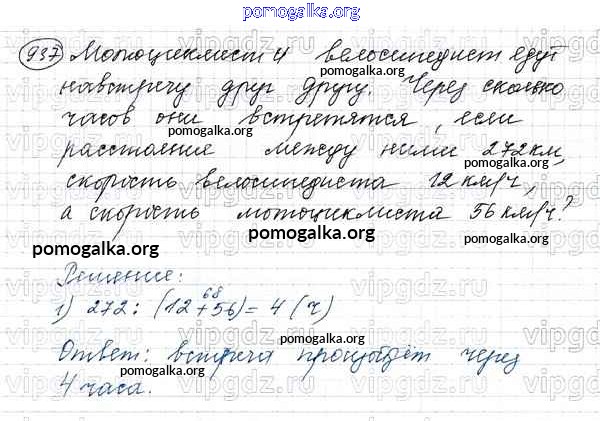 pomogalka.org
937 Мотоциклист и велосипедист едут
навстречу друг другу. Через сколько
pomogalka.org
часов они встретятся, если
pomogalka.org
расстояние между ними 272 км,
pomogalka.org
скорость велосипедиста 12 км/ч,
pomogalka.org
а скорость мотоциклиста 56 км/ч?
pomogalka.org pomogalka.org
Решение:
68
1) 272 : (12+56) = 4 (ч)
pomogalka.org
Ответ: встреча произойдёт через
4 часа.
pomogalka.org
vipgdz.ru